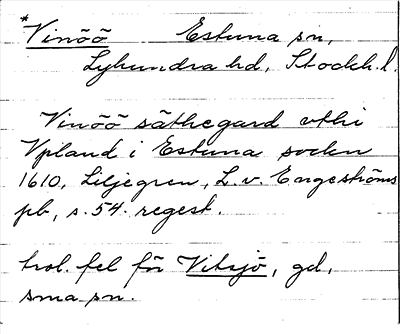 *Vinöö Estuna sn,
Lyhundra hd, Stockh. l.
Vinöö säthegard vthi
Vpland i Estuna socken
1610, Liljegren, L. v. Engeströms
pb, s. 54. regest.
trol. fel för Vitsjö, gd,
sma sn.